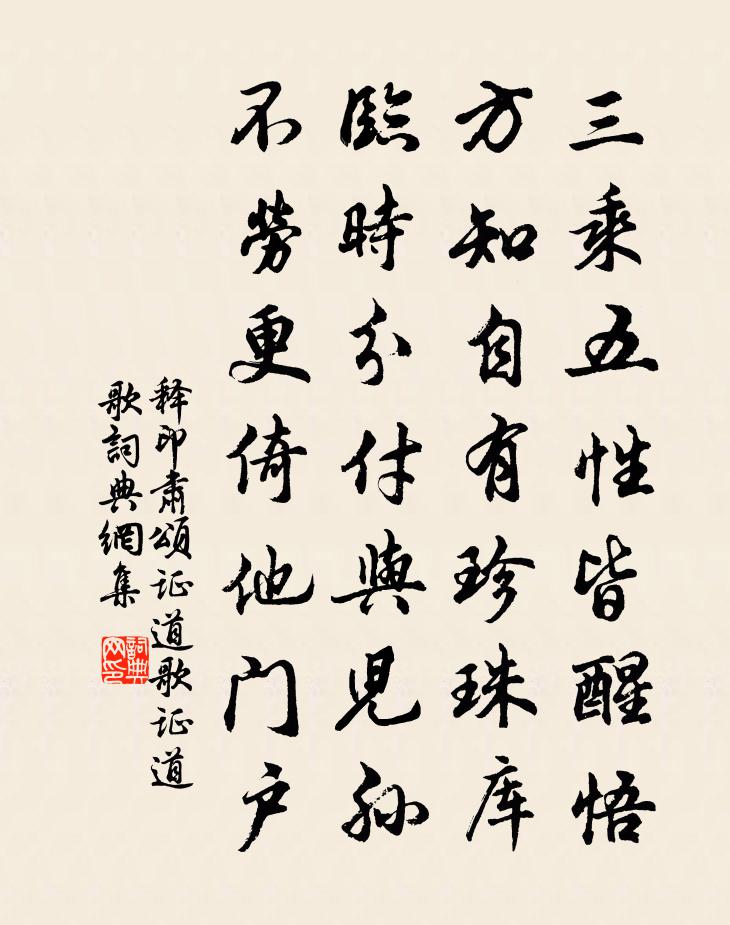 三乘五性皆醒悟
方知自有珍珠库
臨時分付與児孙
不勞更倚他门户
释印肃頌证道歌证道
歌詞典網集
詞典网印